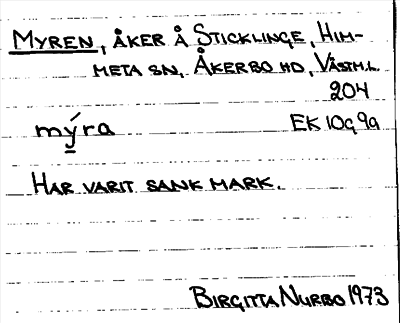 MYREN, ÅKER Å STICKLINGE, HIM-
META SN, ÅKERBO HD, VÄSTM.L.
204
mýra EK 10G 9a
HAR VARIT SANK MARK.
BIRGITTA NURBO 1973